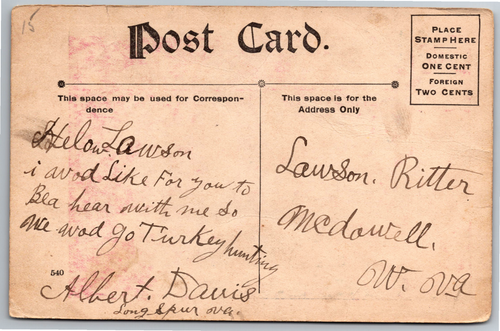 15
Post Card.
PLACE
STAMP HERE
DOMESTIC
ONE CENT
FOREIGN
TWO CENTS
This space may be used for Correspon-
dence
This space is for the
Address Only
Helow Lawson
i wod Like For you to
Bea hear with me so
we wod go Turkey hunting
540
Albert. Davis
Long Spur va.
Lawson. Ritter
Mcdowell.
W. va